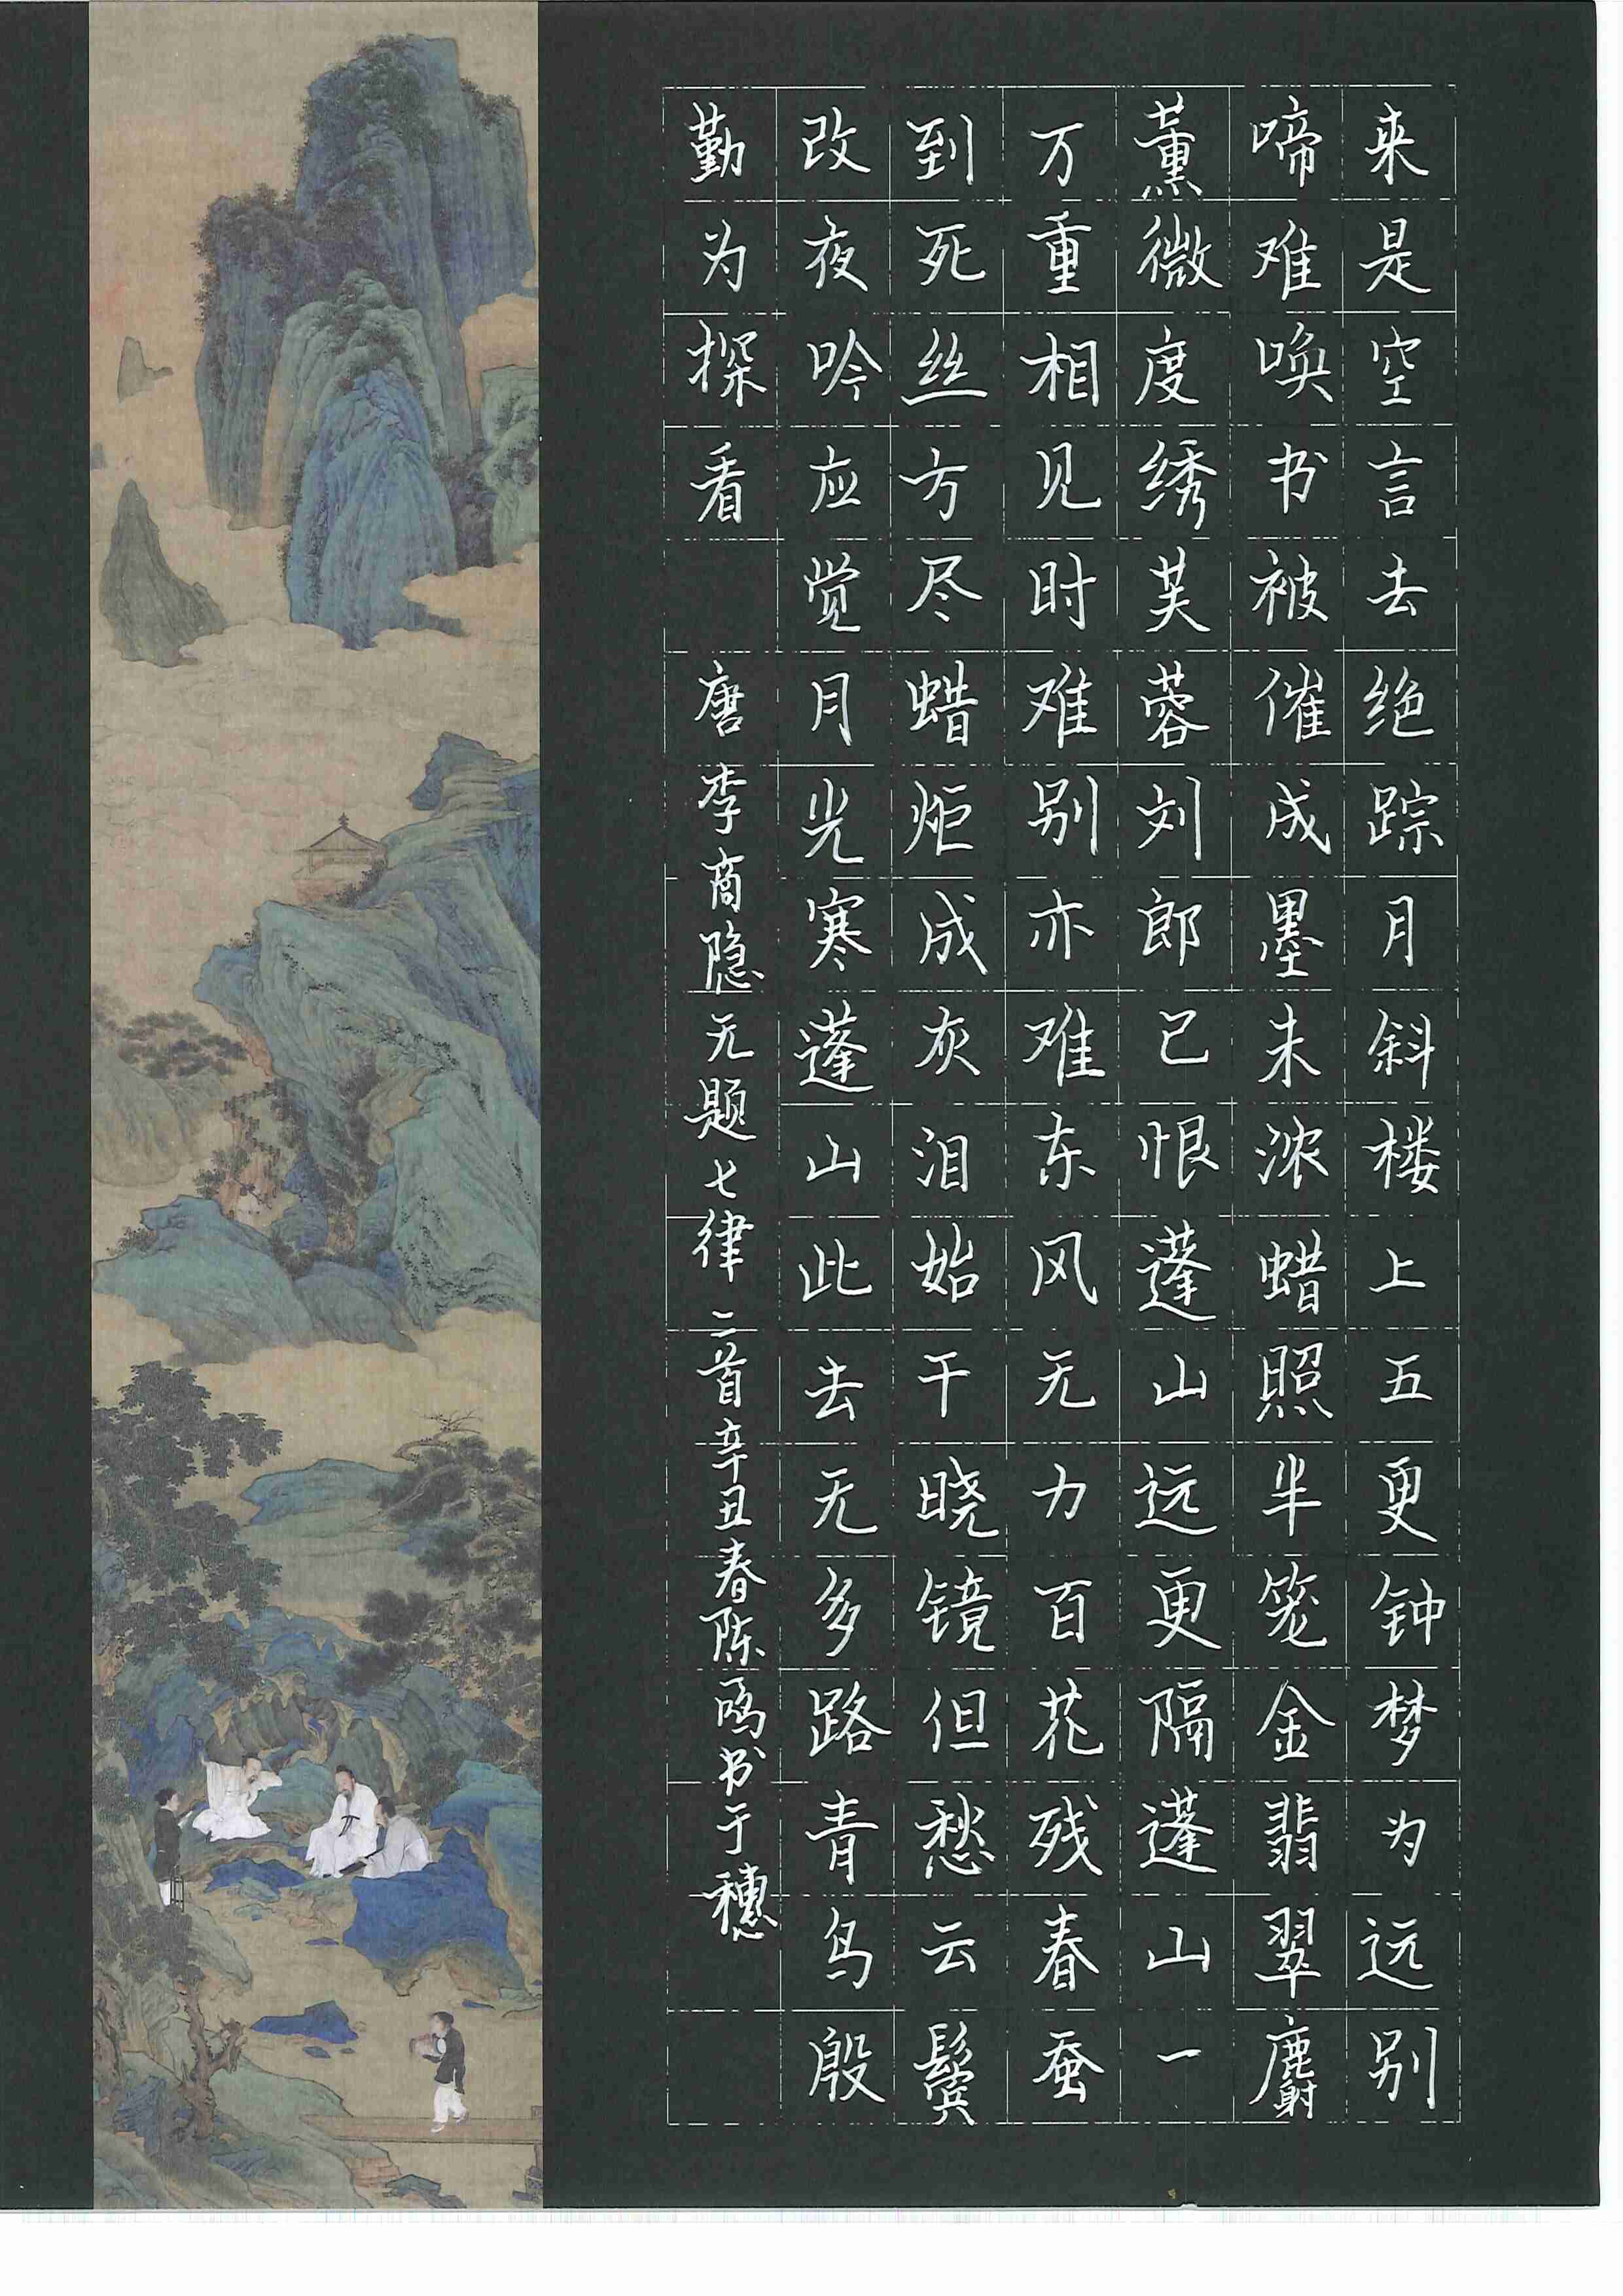 来是空言去绝踪月斜楼上五更钟梦为远别
啼难唤书被催成墨未浓蜡照半笼金翡翠麝
薰微度绣芙蓉刘郎已恨蓬山远更隔蓬山一
万重相见时难别亦难东风无力百花残春蚕
到死丝方尽蜡炬成灰泪始干晓镜但愁云鬓
改夜吟应觉月光寒蓬山此去无多路青鸟殷
勤为探看 唐李商隐无题七律二首辛丑春陈书于穗